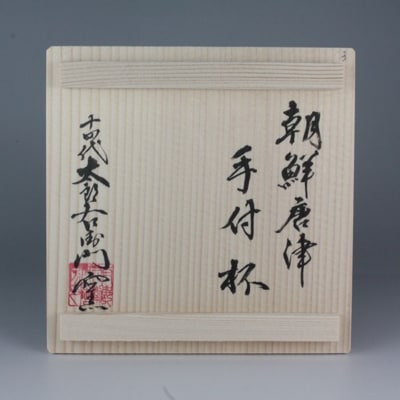 朝鮮唐津
手付杯
十四代太郎右衛門窯